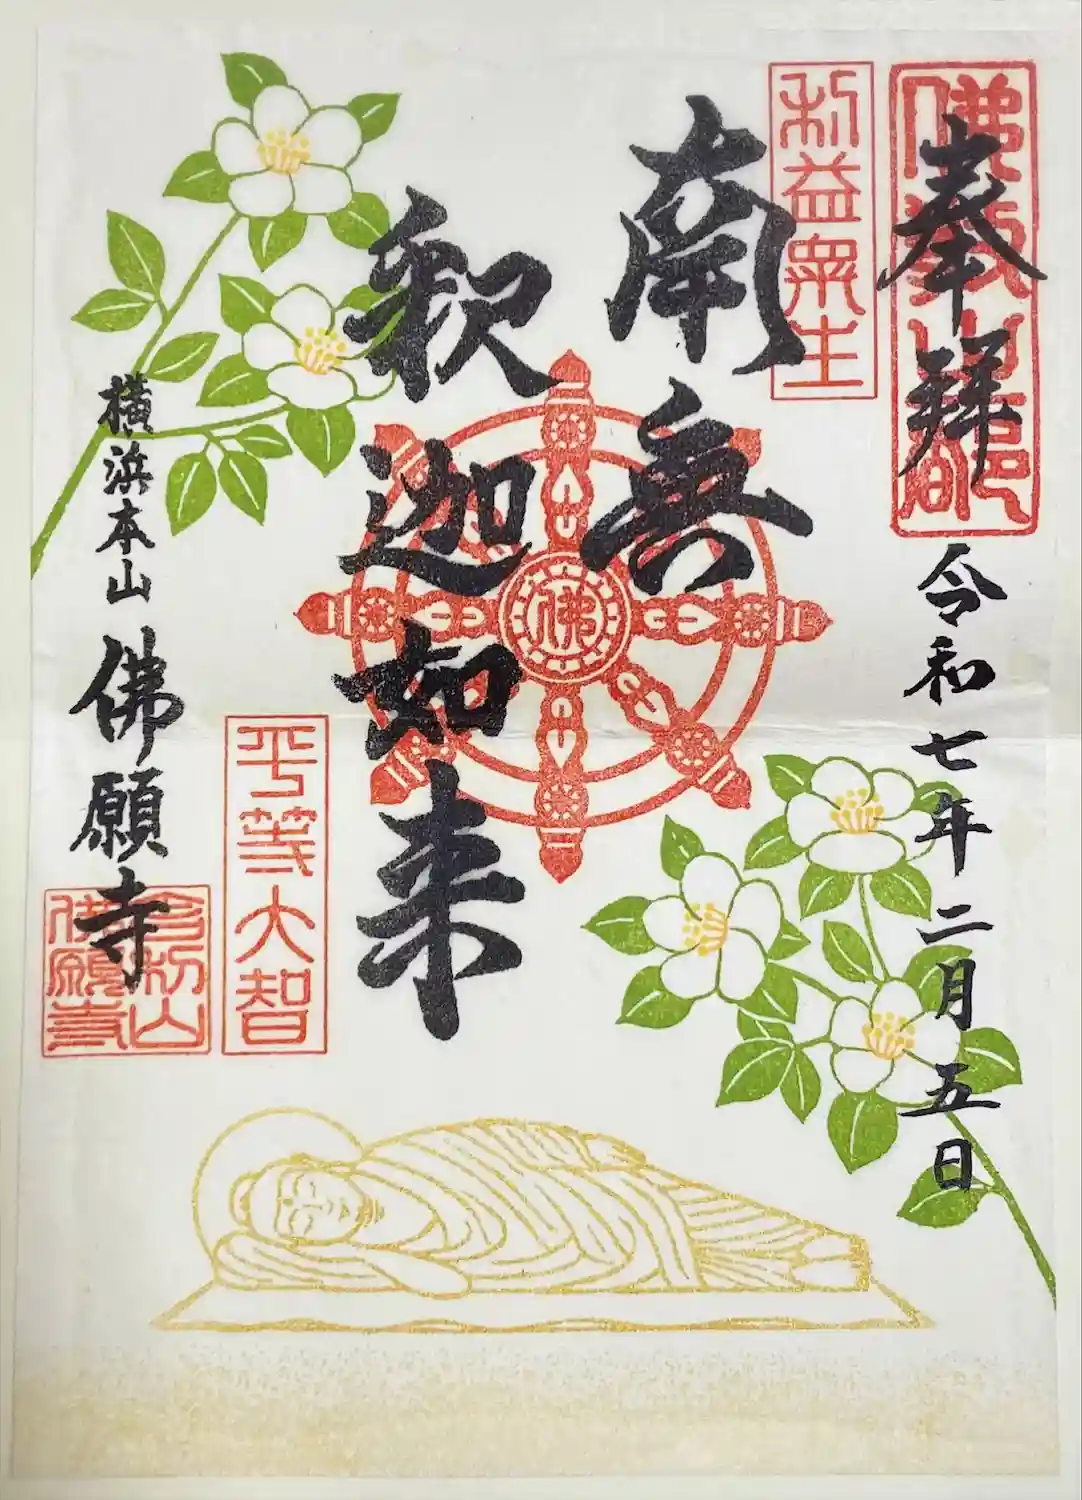 奉拝
令和七年二月五日
利益衆生
南無
釈迦如来
佛
平等大智
横浜本山 佛願寺
佛願寺